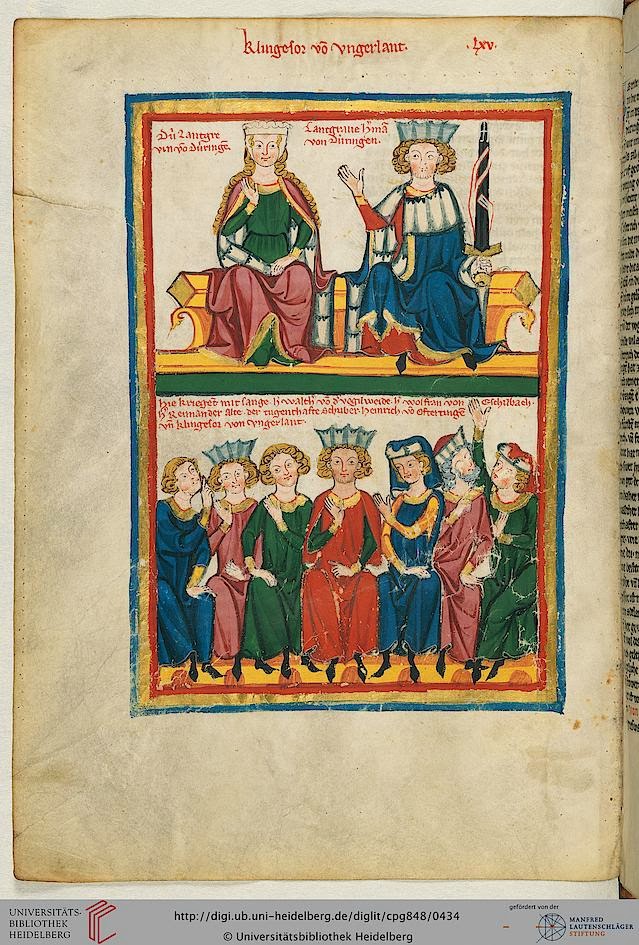 Klingesor võ vngerlant.
.lxv.
Dú Lantgre
vin võ Dúringe.
Lantgraue hᵐã
von Dúringen.
Hie krieget mit sange. h̾ walth̾ võ d̾ vogilweide. h̾ wolfran von Eschilbach.
h̾ Reinmander Alte. der tugenthafte Schriber. heinrich võ Oftertingē
vñ klingesor von vngerlant.
UNIVERSITÄTS-
BIBLIOTHEK
HEIDELBERG
http://digi.ub.uni-heidelberg.de/diglit/cpg848/0434
© Universitätsbibliothek Heidelberg
gefördert von der
MANFRED
LAUTENSCHLÄGER
STIFTUNG